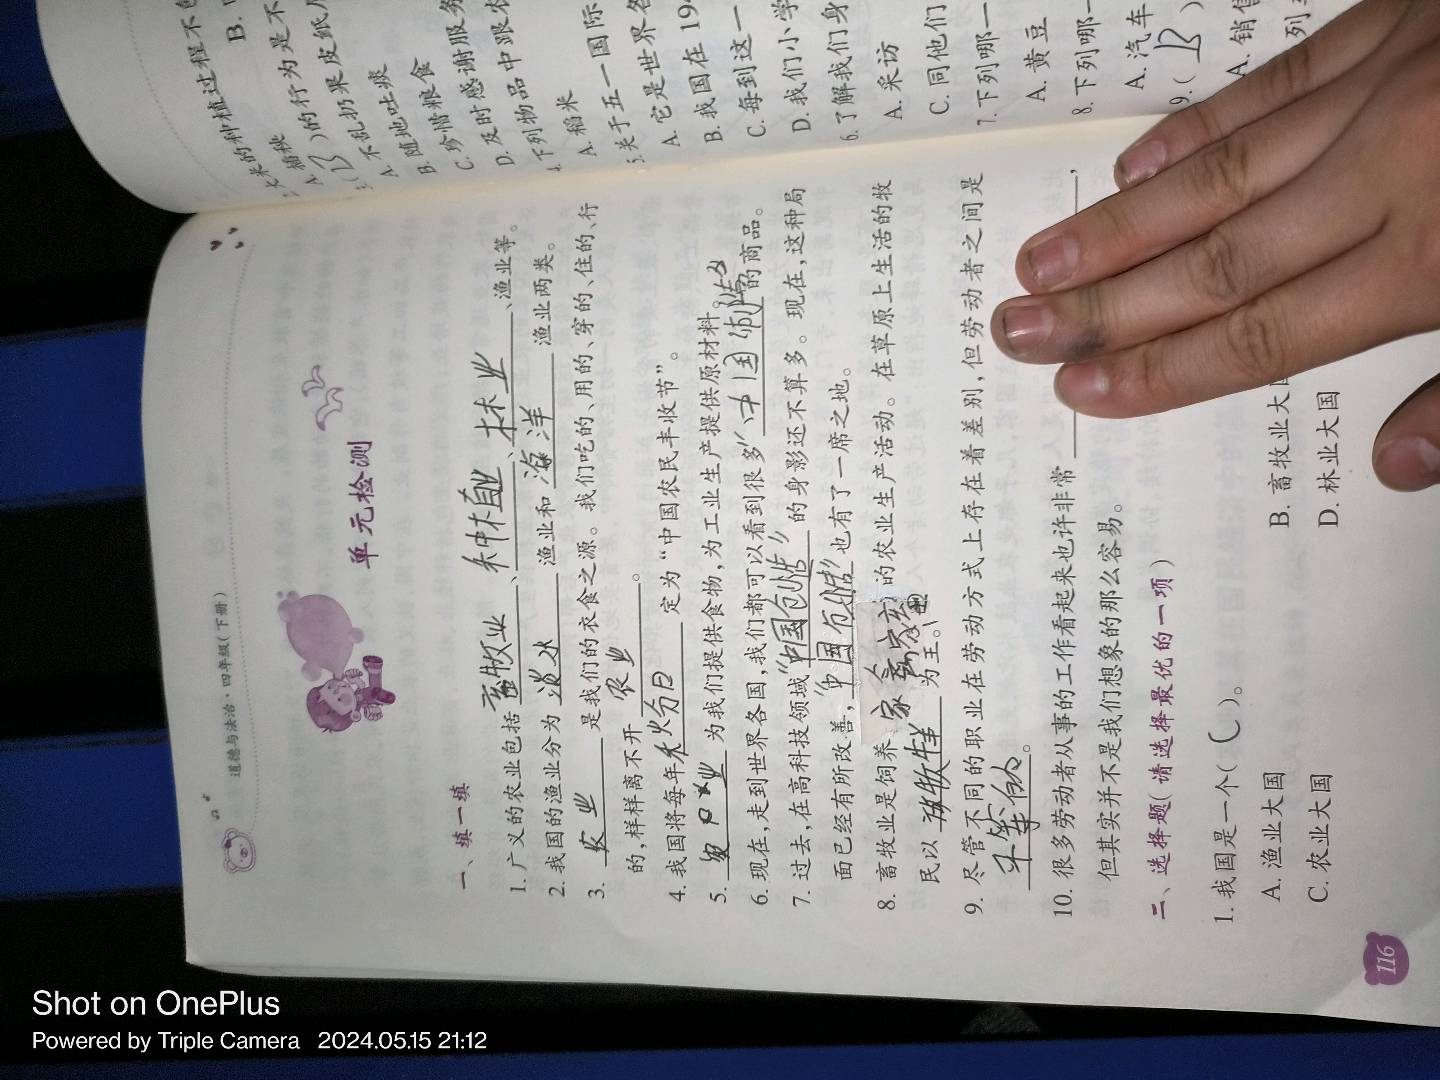 道德与法治·四年级(下册)
单元检测
一、填一填
1. 广义的农业包括畜牧业、种植业、林业、渔业等。
2. 我国的渔业分为淡水渔业和海洋渔业两类。
3. 农业是我们的衣食之源。我们吃的、用的、穿的、住的、行
的,样样离不开农业。
4. 我国将每年秋分日定为“中国农民丰收节”。
5. 为我们提供食物,为工业生产提供原材料。
6. 现在,走到世界各国,我们都可以看到很多“中国制造”的商品。
7. 过去,在高科技领域“中国创造”的身影还不算多。现在,这种局
面已经有所改善,“中国创造”也有了一席之地。
8. 畜牧业是饲养家畜家禽的农业生产活动。在草原上生活的牧
民以放牧为主。
9. 尽管不同的职业在劳动方式上存在着差别,但劳动者之间是
平等的。
10. 很多劳动者从事的工作看起来也许非常,
但其实并不是我们想象的那么容易。
二、选择题(请选择最优的一项)
1. 我国是一个( C )。
A. 渔业大国 B. 畜牧业大
C. 农业大国 D. 林业大国
116
米的种植过程不
插秧 B.
( B )的行为是不
A. 不乱扔果皮纸
B. 随地吐痰
C. 珍惜粮食
D. 及时感谢服务
下列物品中跟
A. 稻米
关于五一国际
A. 它是世界
B. 我国在 19
C. 每到这一
D. 我们小学
6. 了解我们身
A. 采访
C. 同他们
7. 下列哪一
A. 黄豆
8. 下列哪一
A. 汽车
9. ( B )
A. 销售
列
Shot on OnePlus
Powered by Triple Camera 2024.05.15 21:12